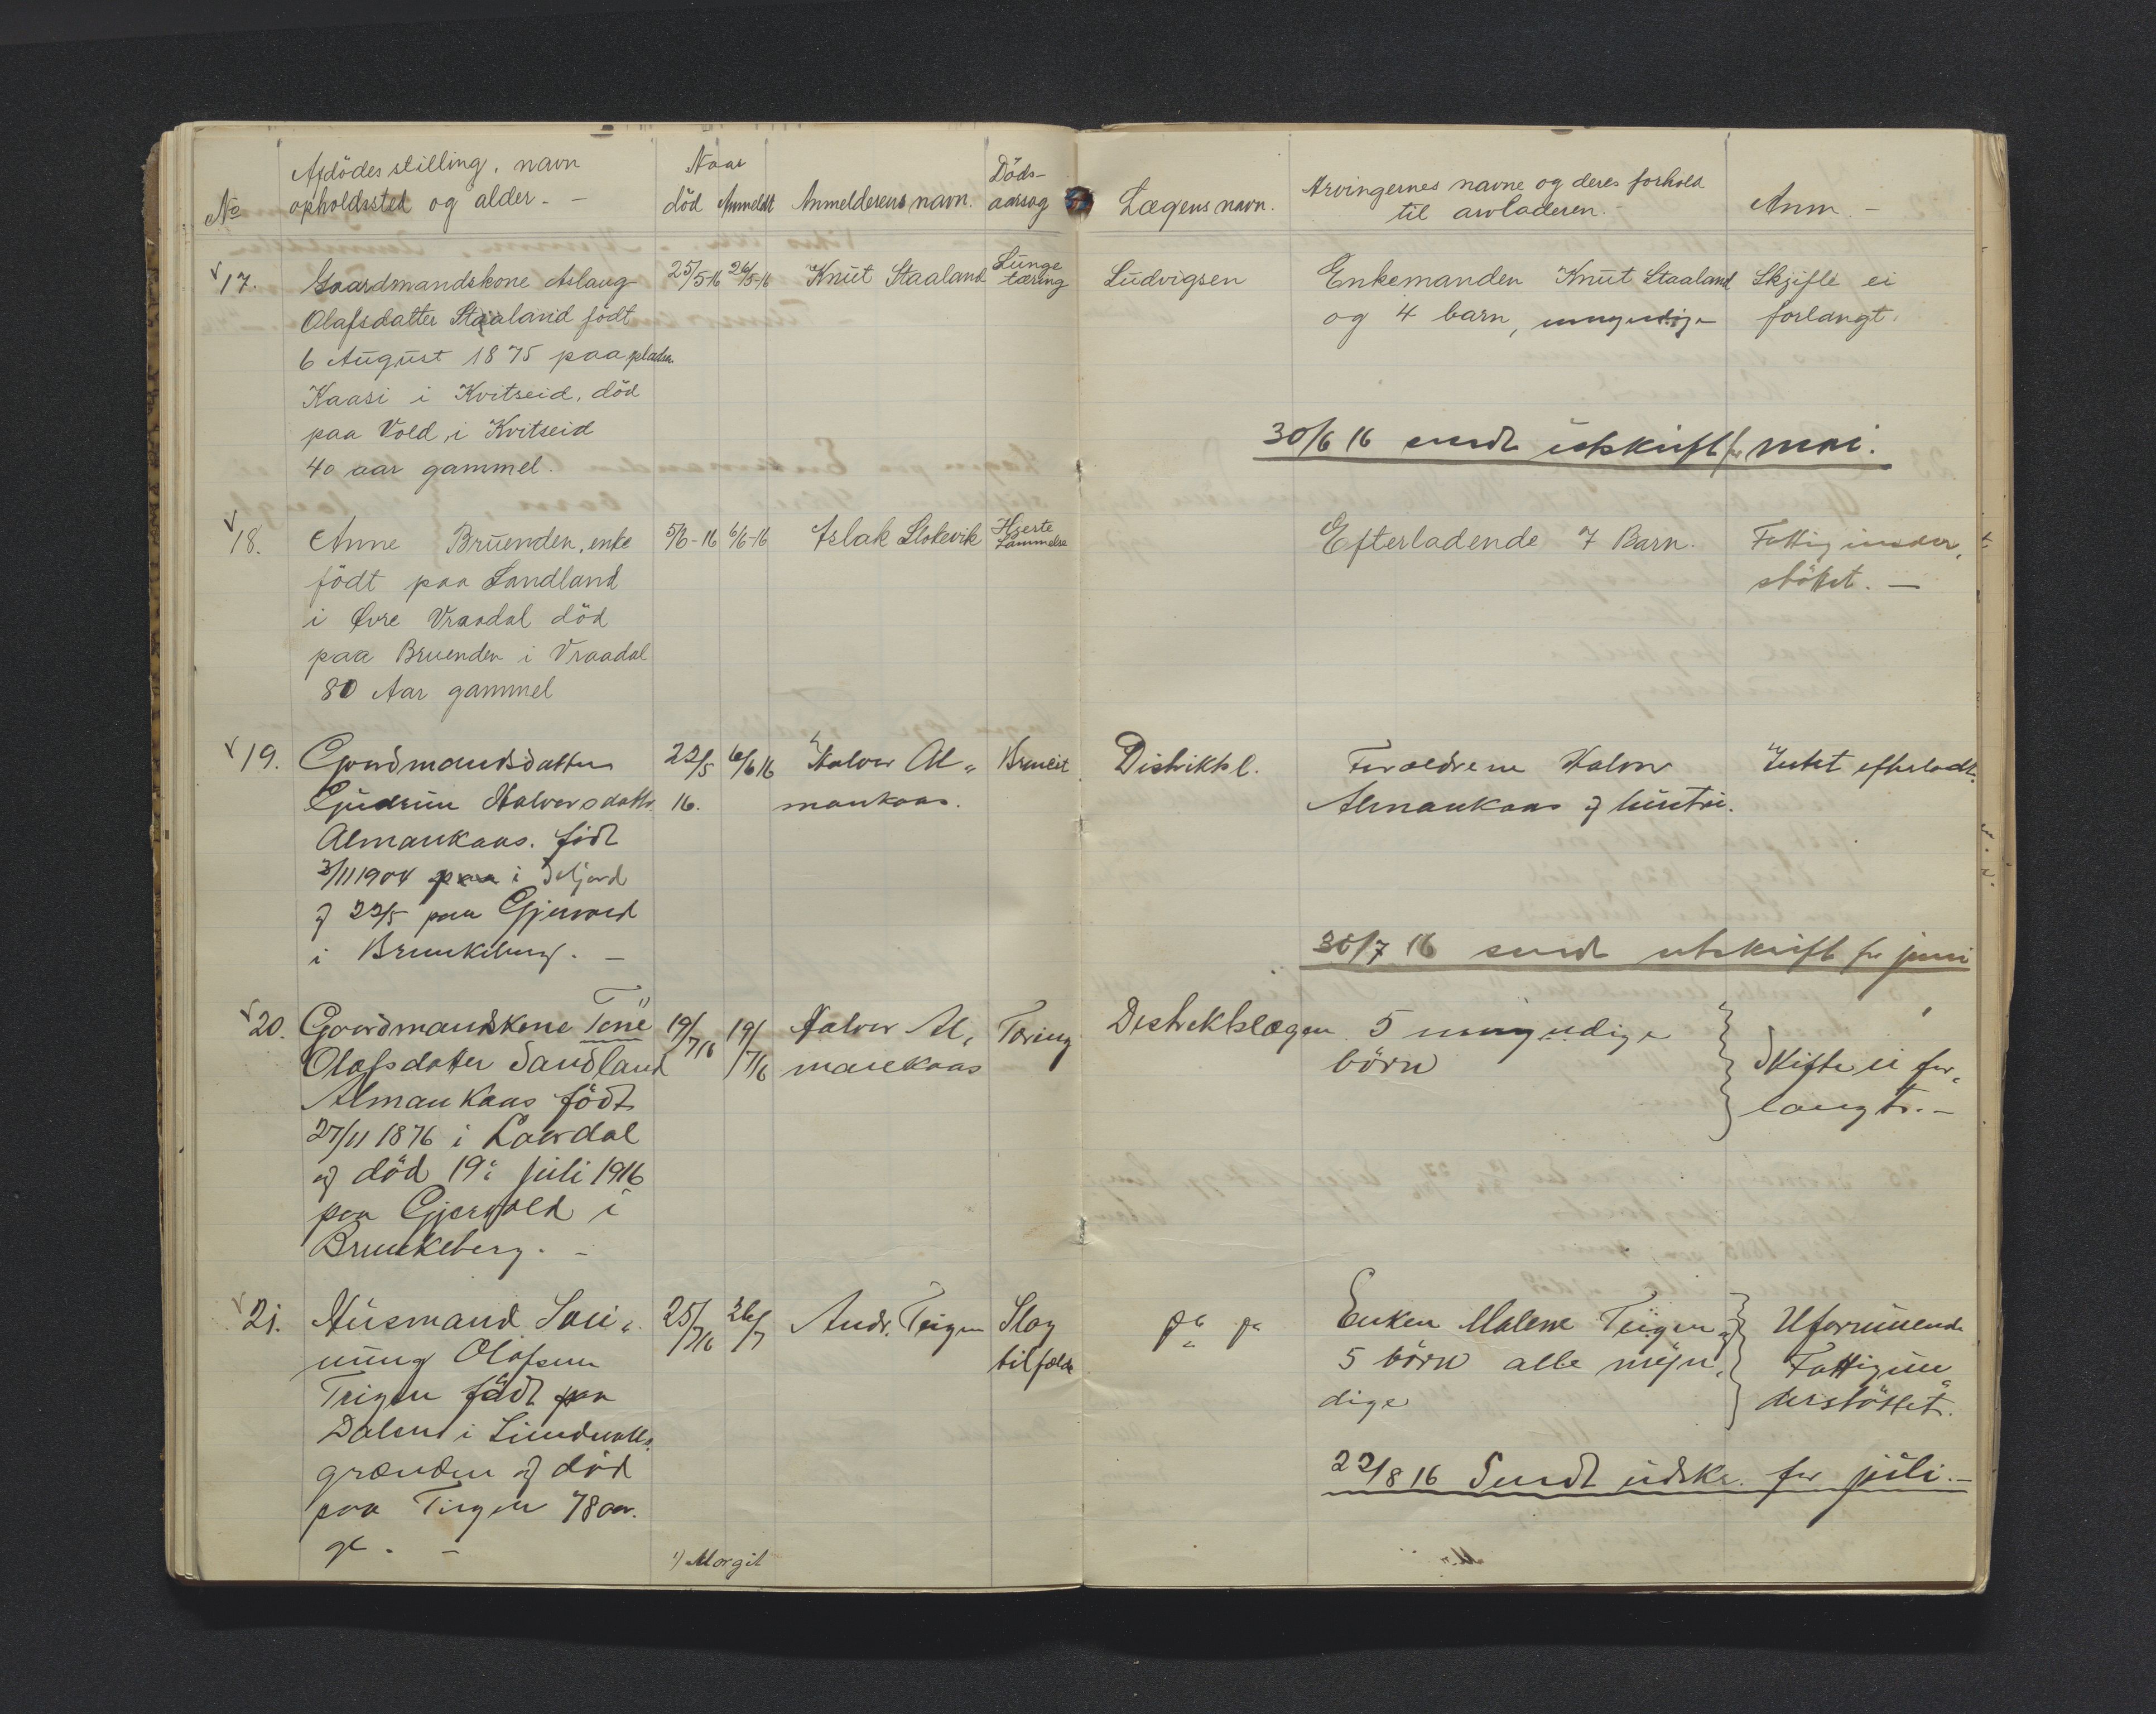 Afdödes stilling, navn
opholdssted og alder. -
No
Naar
död Anmeldt
Anmelderens navn.
Döds-
aarsag
Lægens navn.
Arvingernes navne og deres forhold
til arvladeren.
Anm. -
17.
Gaardmandskone Aslaug
Olafsdatter Staaland födt
6 August 1875 paa pladsen
Kaasi i Kvitseid, död
paa Vold, i Kvitseid
40 aar gammel.
25/5-16 26/5-16
Knut Staaland
Lunge
tæring
Ludvigsen
Enkemanden Knut Staaland
og 4 barn, umyndige
Skjifte ei
forlangt.
30/6 16 sendt utskrift for mai.
18.
Anne Bruenden, enke
födt paa Sandland
i Øvre Vraadal död
paa Bruenden i Vraadal
80 Aar gammel
5/6-16 6/6-16
Aslak Slokvik
Hjerte
Lammelse
Efterladende 7 Barn.
Fattigunder,
støttet. -
19.
Gardmandsdatter
Gudrun Halvorsdattr.
Almankaas. født
3/11 1904 i Seljord
og 22/5 paa Gjervold
i Brunkeberg. -
22/5
16.
6/6 16
Halvor Al"
mankaas.
Distriktsl.
Forældrene Halvor
Almankaas og hustru.
Intet efterladt.
30/7 16 sendt utskrift for juni
20.
Gaardmandskone Tone
Olafsdatter Sandland
Almankaas födt
27/11 1876 i Laardal
og död 19: juli 1916
paa Gjervold i
Brunkeberg. -
19/7/16
19/7/16
Halvor Al,
mankaas
Tæring
Distriktslægen
5 umyndige
börn
Skifte ei for,
langt. -
21.
Husmand Sau"
nung Olafsen
Teigen födt paa
Dalen i
grænden og död
paa Teigen 78 aar.
gl. -
25/7/16
26/7
Andr. Teigen
Slag
tilfælde
Enken Malene Teigen og
5 börn alle myn,
dige
Uformuende
Fattigun"
derstöttet.
22/8 16 Sendt udskr. for juli. -
1) Morgit